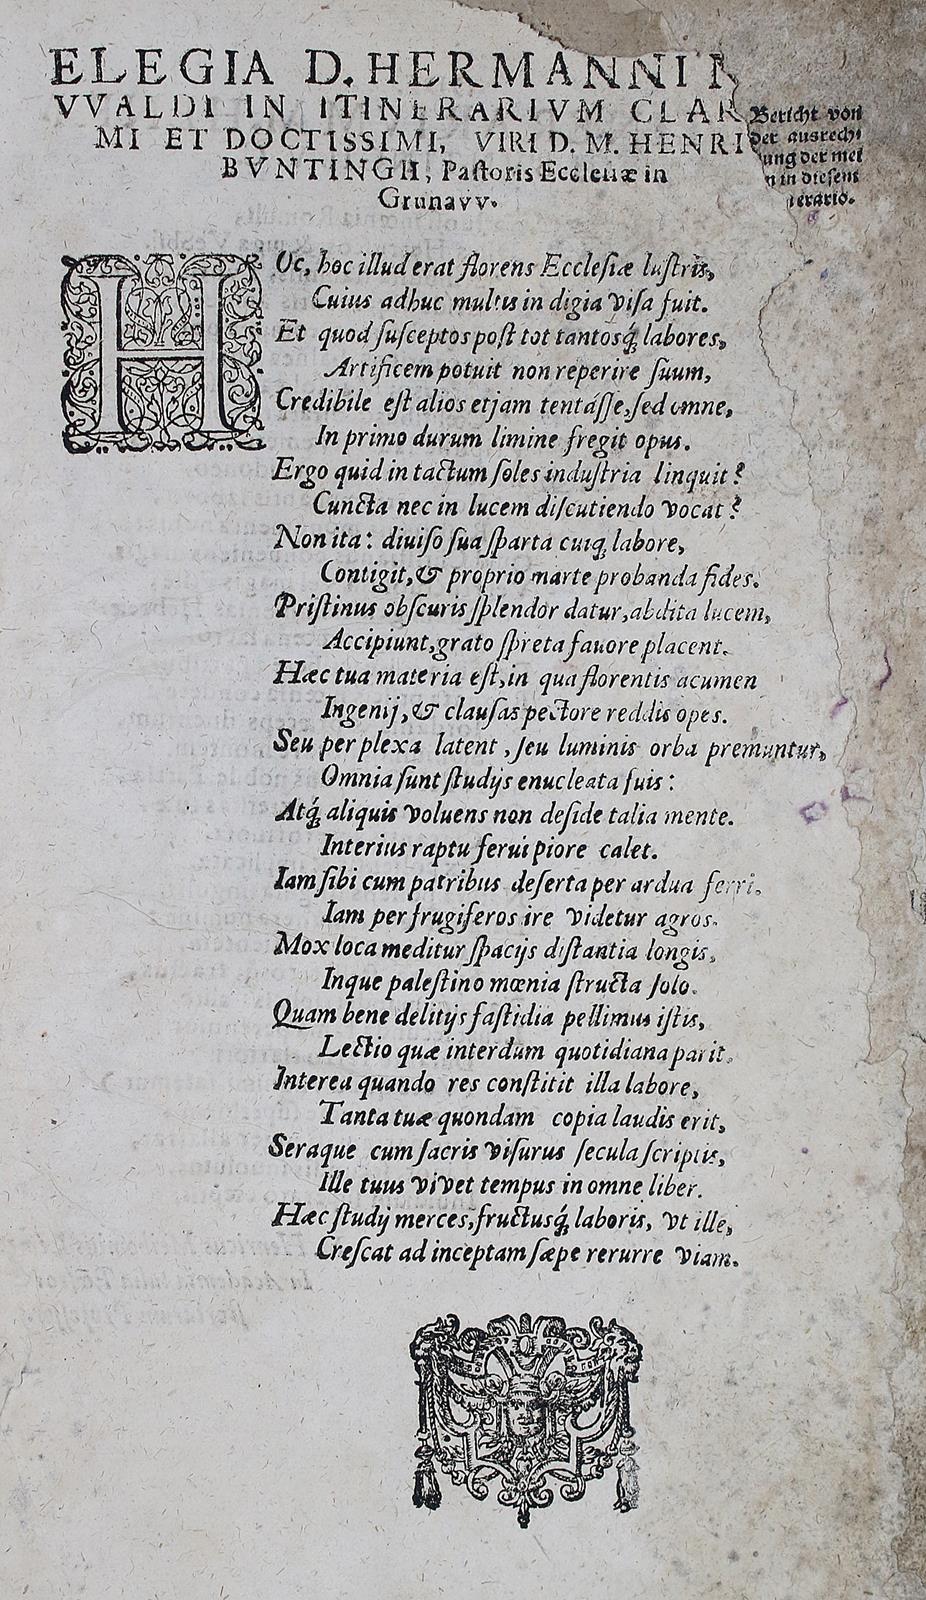 ELEGIA D. HERMANNI
VVALDI IN ITINERARIVM CLAR
MI ET DOCTISSIMI, VIRI D. M. HENRI
BVNTINGII, Paſtoris Eccleſiæ in
Grunavv.
Bericht von
der ausrech
ung der mei
n in dieſem
erario.
HOc, hoc illud erat florens Eccleſiæ luſtris,
Cuius adhuc multis in digia viſa fuit.
Et quod ſuſceptos poſt tot tantosq́; labores,
Artificem potuit non reperire ſuum,
Credibile eſt alios etjam tentáſſe, ſed omne,
In primo durum limine fregit opus.
Ergo quid in tactum ſoles induſtria linquit?
Cuncta nec in lucem diſcutiendo vocat?
Non ita: diuiſo ſua ſparta cuiq; labore,
Contigit, & proprio marte probanda fides.
Priſtinus obſcuris ſplendor datur, abdita lucem,
Accipiunt, grato ſpreta fauore placent.
Hæc tua materia eſt, in qua florentis acumen
Ingenij, & clauſas pectore reddis opes.
Seu perplexa latent, ſeu luminis orba premuntur,
Omnia ſunt ſtudijs enucleata ſuis:
Atq́; aliquis voluens non deſide talia mente.
Interius raptu ferui piore calet.
Iam ſibi cum patribus deſerta per ardua ferri.
Iam per frugiferos ire videtur agros.
Mox loca meditur ſpacijs diſtantia longis,
Inque paleſtino mœnia ſtructa ſolo.
Quam bene delitijs faſtidia pellimus iſtis,
Lectio quæ interdum quotidiana parit.
Interea quando res conſtitit illa labore,
Tanta tuæ quondam copia laudis erit,
Seraque cum ſacris viſurus ſecula ſcriptis,
Ille tuus vivet tempus in omne liber.
Hæc ſtudij merces, fructusq́; laboris, vt ille,
Creſcat ad inceptam ſæpe rerurre viam.